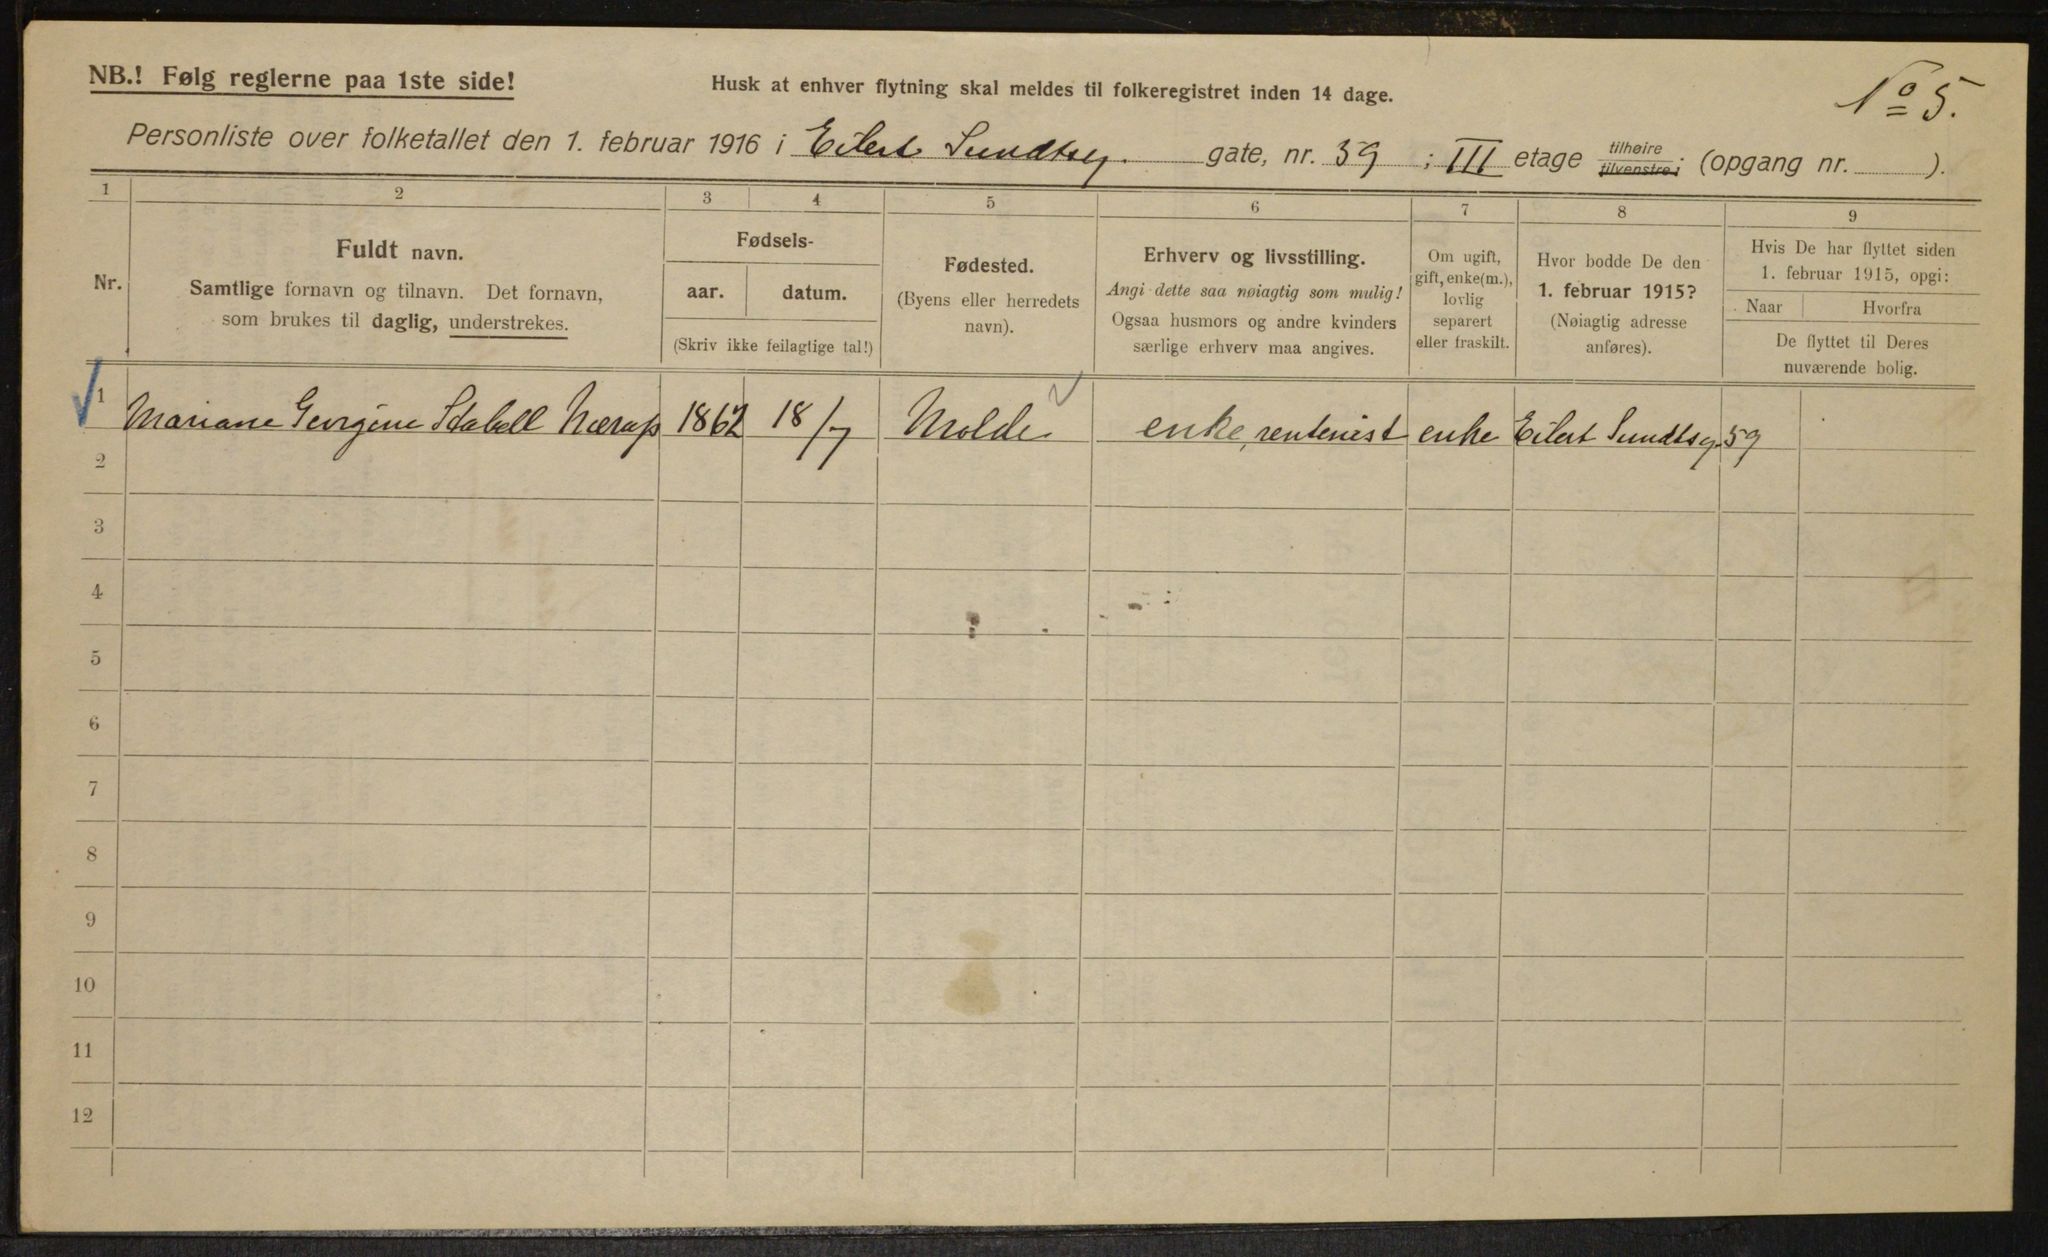 NB.! Følg reglerne paa 1ste side!
Husk at enhver flytning skal meldes til folkeregistret inden 14 dage.
No 5.
Personliste over folketallet den 1. februar 1916 i Eilert Sundtsg. gate, nr. 39 ; III etage tilhøire tilvenstre; (opgang nr. ).
1 2 3 4 5 6 7 8 9
Nr.
Fuldt navn.
Samtlige fornavn og tilnavn. Det fornavn,
som brukes til daglig, understrekes.
Fødsels-
aar. datum.
(Skriv ikke feilagtige tal!)
Fødested.
(Byens eller herredets
navn).
Erhverv og livsstilling.
Angi dette saa nøiagtig som mulig!
Ogsaa husmors og andre kvinders
særlige erhverv maa angives.
Om ugift,
gift, enke(m.),
lovlig
separert
eller fraskilt.
Hvor bodde De den
1. februar 1915?
(Nøiagtig adresse
anføres).
Hvis De har flyttet siden
1. februar 1915, opgi:
Naar Hvorfra
De flyttet til Deres
nuværende bolig.
1 Mariane Georgine Stabell Nærup 1862 18/7 Molde enke, rentenist enke Eilert Sundtsg 59
2
3
4
5
6
7
8
9
10
11
12